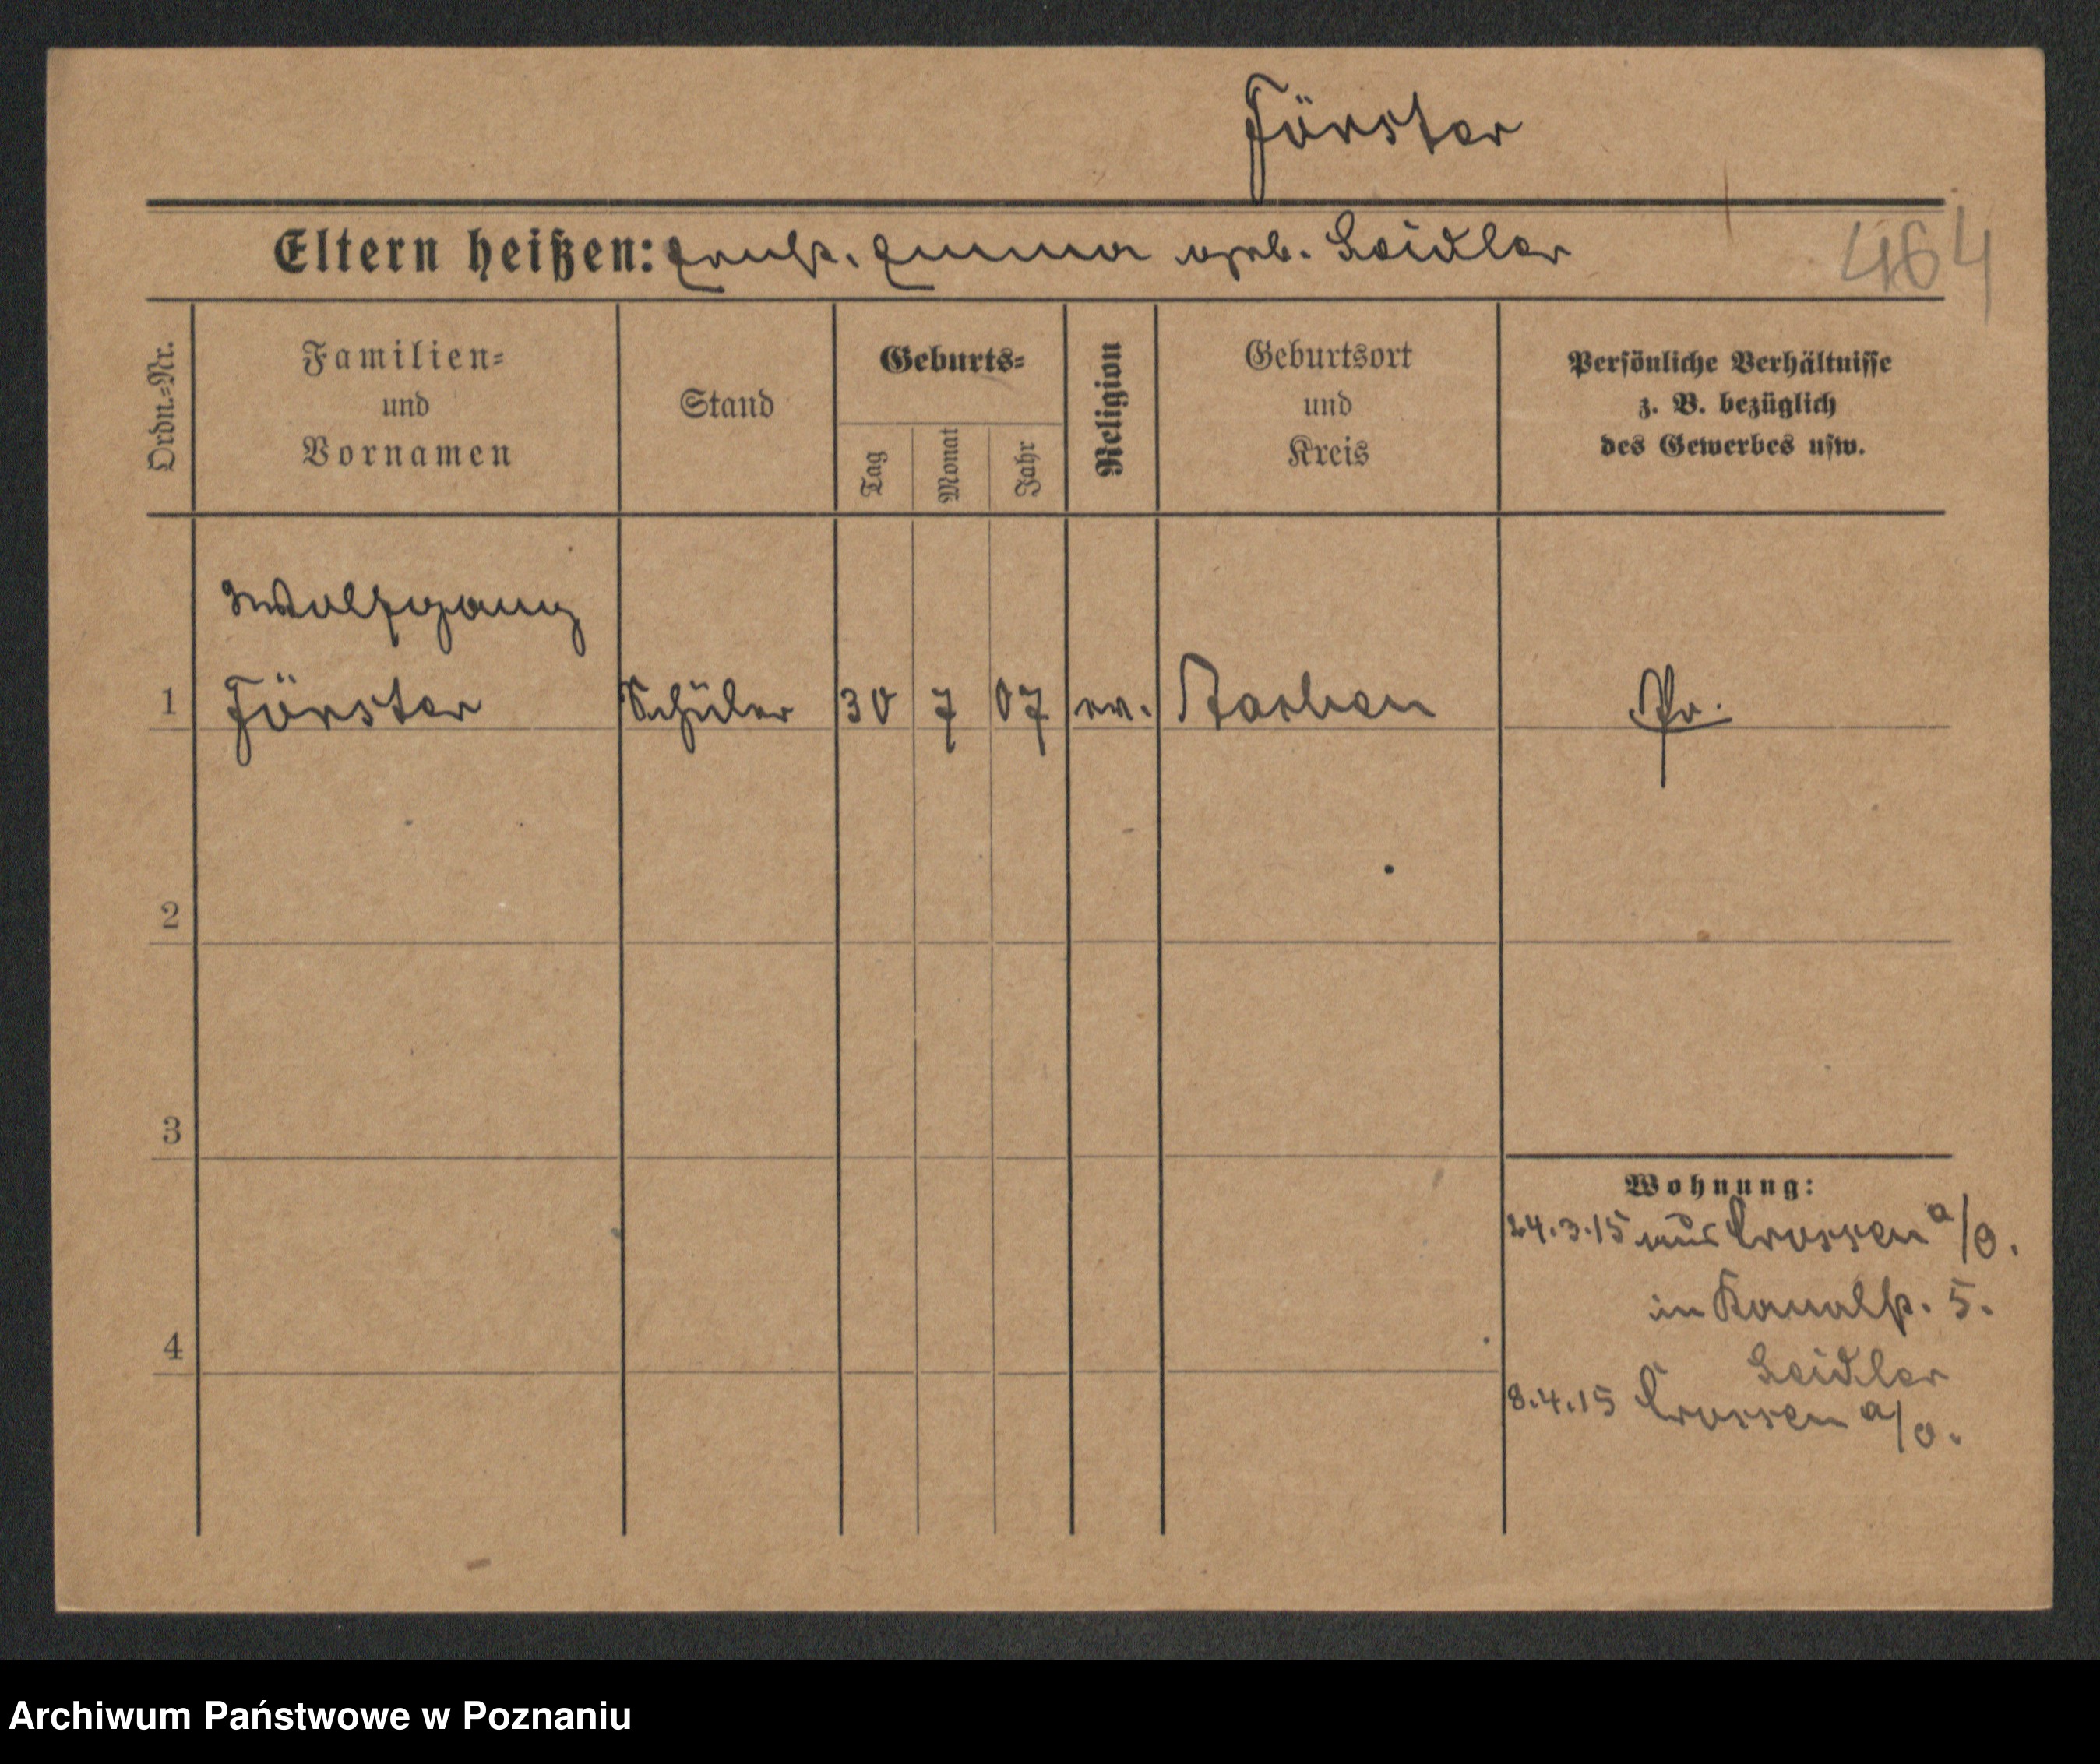 Förster
Eltern heißen: Ernst. Emma geb. Seidler
464
Ordn.=Nr.
Familien=
und
Vornamen
Stand
Geburts=
Tag
Monat
Jahr
Religion
Geburtsort
und
Kreis
Persönliche Verhältnisse
z. B. bezüglich
des Gewerbes usw.
Wolfgang
1 Förster Schüler 30 7 07 ev. Pr.
2
3
Wohnung:
24.3.15 aus Crossen a/O.
in Kanalst. 5.
4
Seidler
8.4.15 Crossen a/O.
Archiwum Państwowe w Poznaniu